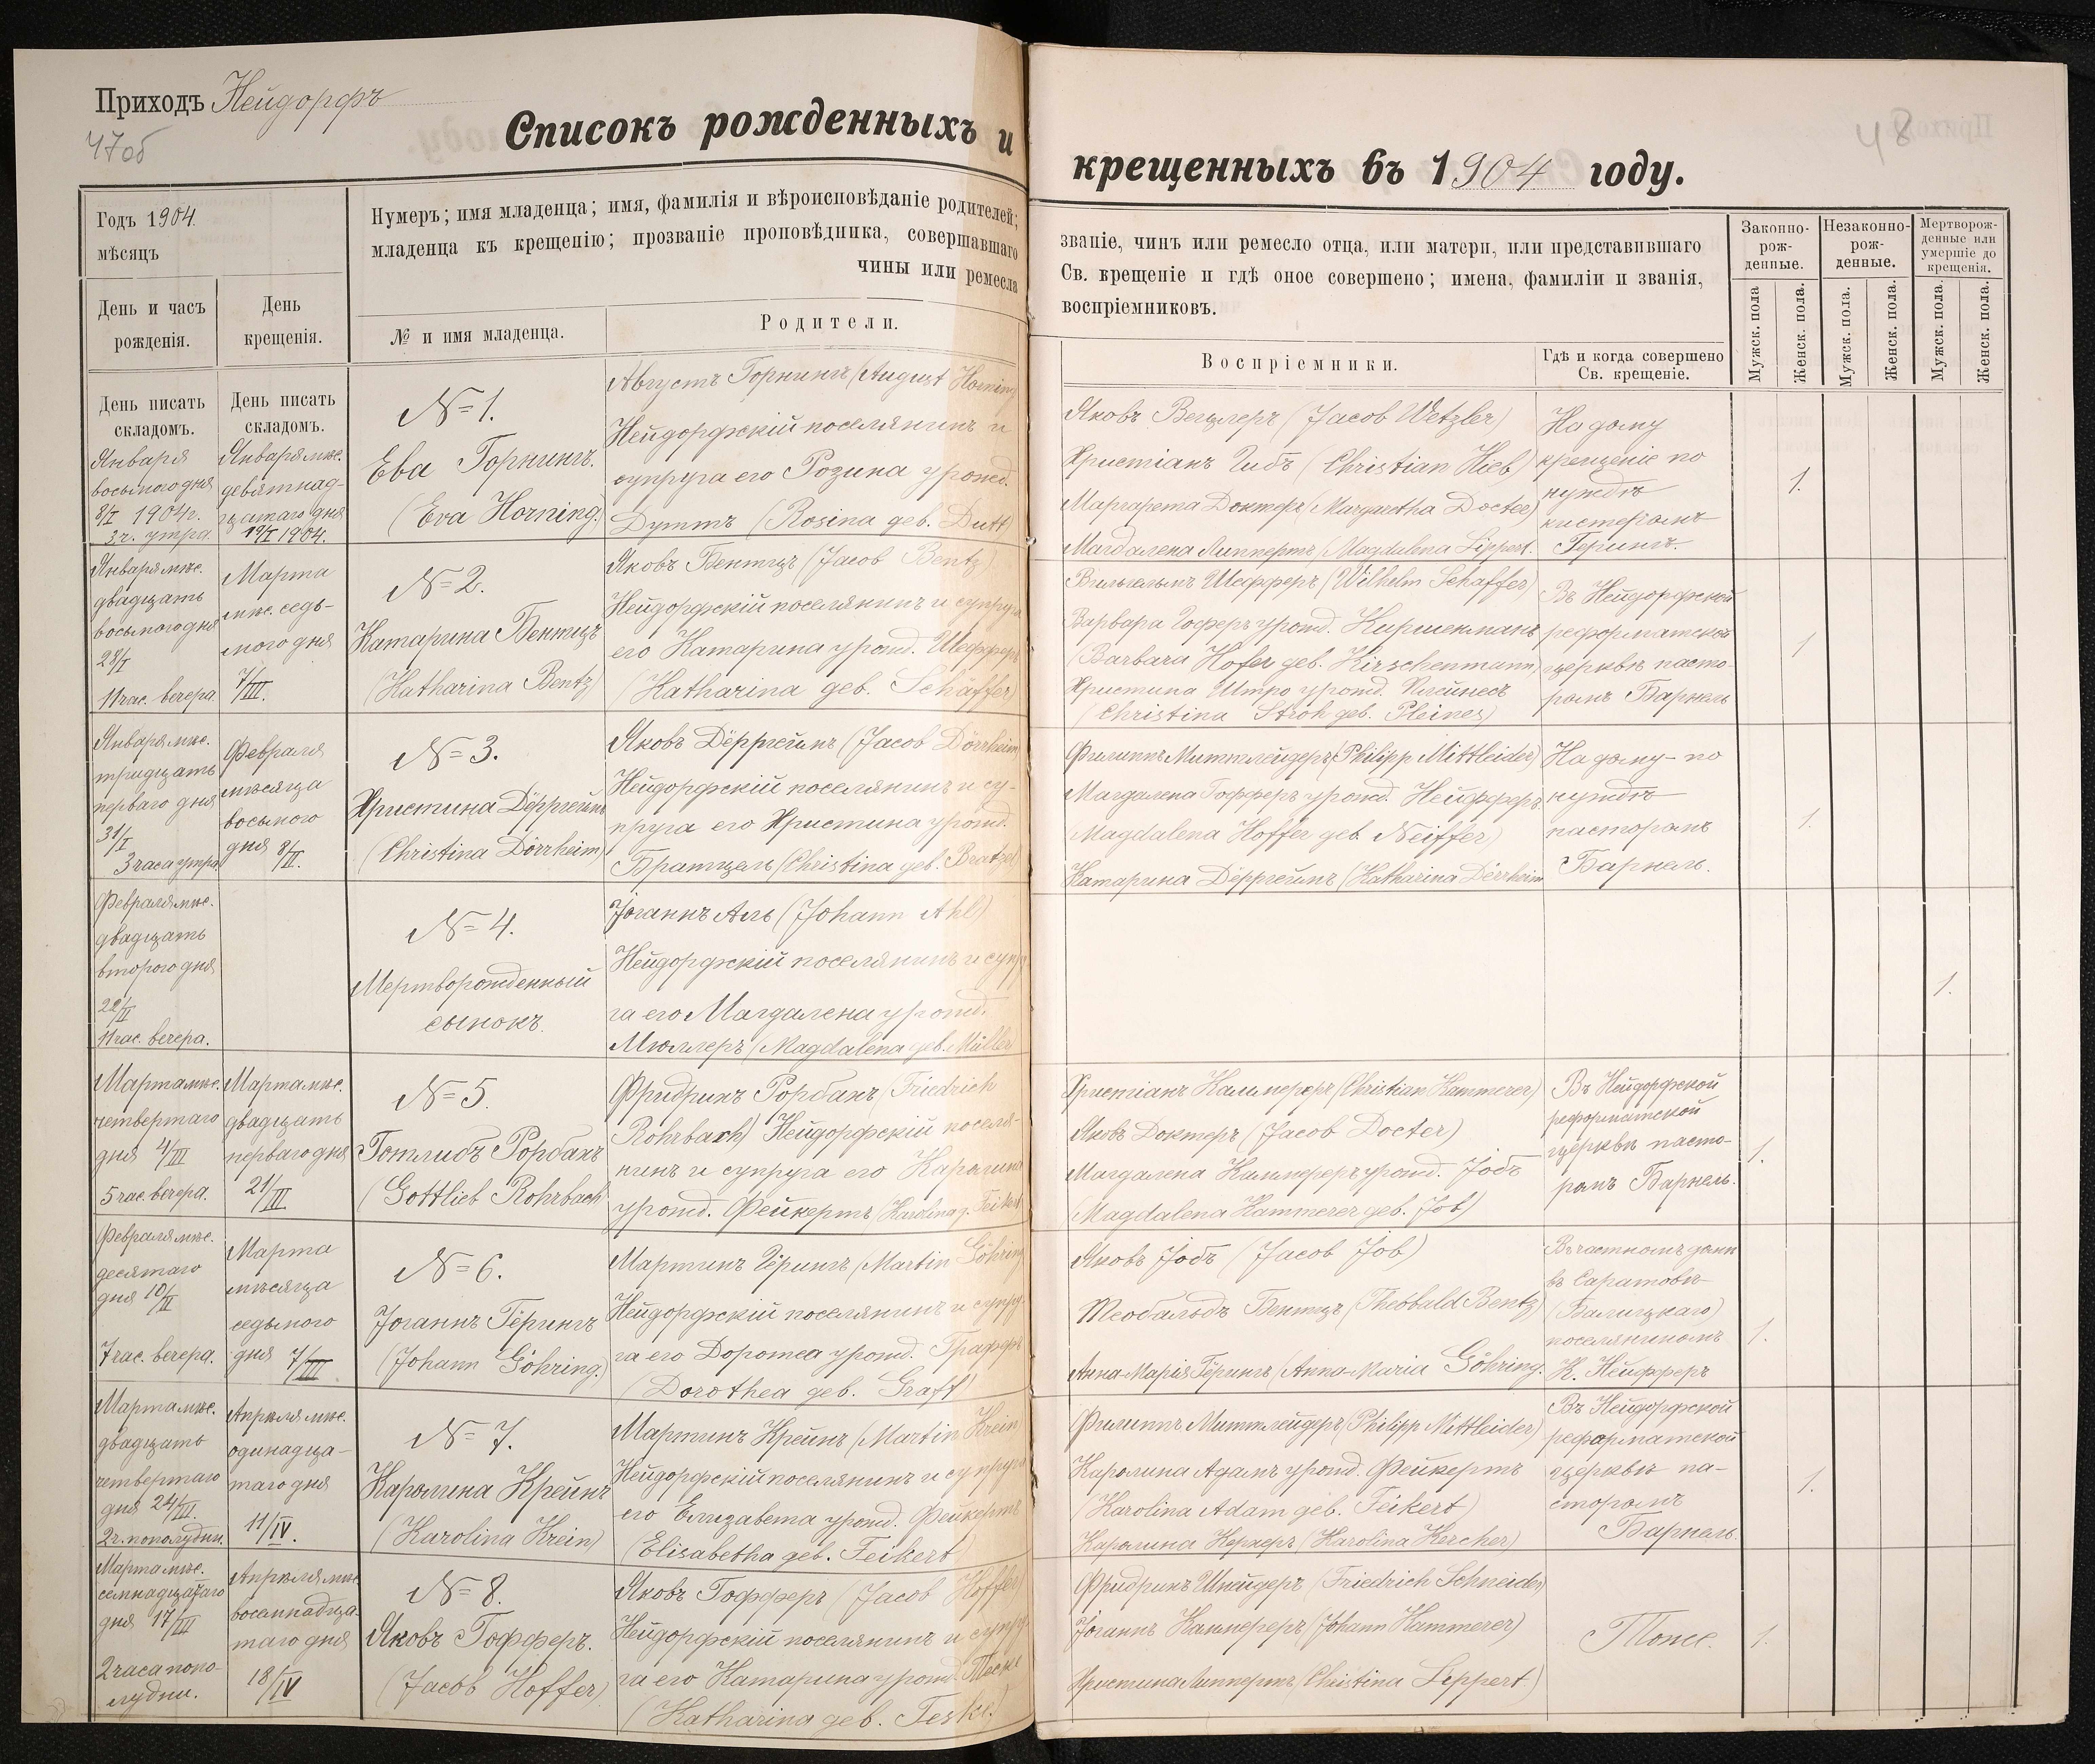 Приходъ Нейдорфъ
47об
Списокъ рожденныхъ и
Годъ 1904.
мѣсяцъ
Нумеръ; имя младенца; имя, фамилія и вѣроисповѣданіе родителей;
младенца къ крещенію; прозваніе проповѣдника, совершавшаго
чины или ремесла
День и часъ
рожденія.
День
крещенія.
№ и имя младенца.
Родители.
День писать
складомъ.
День писать
складомъ.
Января
восьмого дня
8/I 1904г.
3 ч. утра.
Января мѣс.
девятнад-
цатаго дня
19/I 1904.
№ 1.
Ева Горнингъ.
(Eva Horning.)
Августъ Горнингъ (August Horning)
Нейдорфскій поселянинъ и
супруга его Розина урожд.
Дуттъ (Rosina geb. Dutt)
Января мѣс.
двадцать
восьмого дня
28/I
11 час. вечера.
Марта
мѣс. седь-
мого дня
7/III.
№ 2.
Катарина Бентцъ
(Katharina Bentz)
Яковъ Бентцъ (Jacob Bentz)
Нейдорфскій поселянинъ и супруга
его Катарина урожд. Шефферъ
(Katharina geb. Schäffer)
Января мѣс.
тридцать
перваго дня
31/I
3 часа утра.
Февраля
мѣсяца
восьмого
дня 8/II.
№ 3.
Христина Дёрргеймъ
(Christina Dörrheim)
Яковъ Дёрргеймъ (Jacob Dörrheim)
Нейдорфскій поселянинъ и су-
пруга его Христина урожд.
Братцель (Christina geb. Bratzel)
Февраля мѣс.
двадцать
второго дня
22/II
11 час. вечера.
№ 4.
Мертворожденный
сынокъ.
Іоганнъ Аль (Johann Ahl)
Нейдорфскій поселянинъ и супру-
га его Магдалена урожд.
Мюллеръ (Magdalena geb. Müller)
Марта мѣс.
четвертаго
дня 4/III
5 час. вечера.
Марта мѣс.
двадцать
перваго дня
21/III
№ 5.
Готлибъ Рорбахъ
(Gottlieb Rohrbach)
Фридрихъ Рорбахъ (Friedrich
Rohrbach) Нейдорфскій поселя-
нинъ и супруга его Каролина
урожд. Фейкертъ (Karolina g. Feikert)
Февраля мѣс.
десятаго
дня 10/II
7 час. вечера.
Марта
мѣсяца
седьмого
дня 7/III.
№ 6.
Іоганнъ Гёрингъ
(Johann Göhring.)
Мартинъ Гёрингъ (Martin Göhring)
Нейдорфскій поселянинъ и супру-
га его Доротеа урожд. Граффъ
(Dorothea geb. Graff)
Марта мѣс.
двадцать
четвертаго
дня 24/III.
2 ч. пополудни.
Апрѣля мѣс.
одинадца-
таго дня
11/IV.
№ 7.
Каролина Крейнъ
(Karolina Krein)
Мартинъ Крейнъ (Martin Krein)
Нейдорфскій поселянинъ и супруга
его Елизавета урожд. Фейкертъ
(Elisabetha geb. Feikert)
Марта мѣс.
семнадцатаго
дня 17/III
2 часа попо-
лудни.
Апрѣля мѣс.
восемнадца-
таго дня
18/IV
№ 8.
Яковъ Гофферъ.
(Jacob Hoffer)
Яковъ Гофферъ (Jacob Hoffer)
Нейдорфскій поселянинъ и супру-
га его Катарина урожд. Теске
(Katharina geb. Teske.)
48
крещенныхъ въ 1904 году.
званіе, чинъ или ремесло отца, или матери, или представившаго
Св. крещеніе и гдѣ оное совершено; имена, фамиліи и званія,
воспріемниковъ.
Воспріемники.
Гдѣ и когда совершено
Св. крещеніе.
Законно-
рож-
денные.
Незаконно-
рож-
денные.
Мертворож-
денные или
умершіе до
крещенія.
Мужск. пола
Женск. пола.
Мужск. пола.
Женск. пола.
Мужск. пола.
Женск. пола.
Яковъ Вецлеръ (Jacob Wetzler)
Христіанъ Гибъ (Christian Hieb)
Маргарета Доктеръ (Margaretha Docter)
Магдалена Липпертъ (Magdalena Lippert.
На дому
крещеніе по
нуждѣ
кистеромъ
Герингъ.
1.
Вильгельмъ Шефферъ (Wilhelm Schaffer)
Варвара Гоферъ урожд. Киршенманъ
(Barbara Hofer geb. Kirschenmann)
Христина Штро урожд. Плейнесъ
(Christina Stroh geb. Pleines)
Въ Нейдорфской
реформатской
церквѣ пасто-
ромъ Барнель
1
Филиппъ Миттлейдеръ (Philipp Mittleider)
Магдалена Гофферъ урожд. Нейфферъ.
Magdalena Hoffer geb. Neiffer)
Катарина Дёрргеймъ (Katharina Dörrheim
На дому - по
нуждѣ
пасторомъ
Барнель.
1.
1.
Христіанъ Каммереръ (Christian Kammerer)
Яковъ Доктеръ (Jacob Docter)
Магдалена Каммереръ урожд. Іобъ
(Magdalena Kammerer geb. Job)
Въ Нейдорфской
реформатской
церквѣ пасто-
ромъ Барнель.
1.
Яковъ Іобъ (Jacob Job)
Теобальдъ Бентцъ (Theobald Bentz)
Анна-Марія Гёрингъ (Anna-Maria Göhring.
Въ частномъ домѣ
въ Саратовѣ
поселяниномъ
К. Нейфферъ
1.
Филиппъ Миттлейдеръ (Philipp Mittleider)
Каролина Адамъ урожд. Фейкертъ
(Karolina Adam geb. Feikert)
Каролина Керхеръ (Karolina Kercher)
Въ Нейдорфской
реформатской
церквѣ па-
сторомъ
Барнель.
1.
Фридрихъ Шнейдеръ (Friedrich Schneider)
Іоганнъ Каммереръ (Johann Kammerer)
Христина Липпертъ (Christina Lippert.)
Тоже.
1.